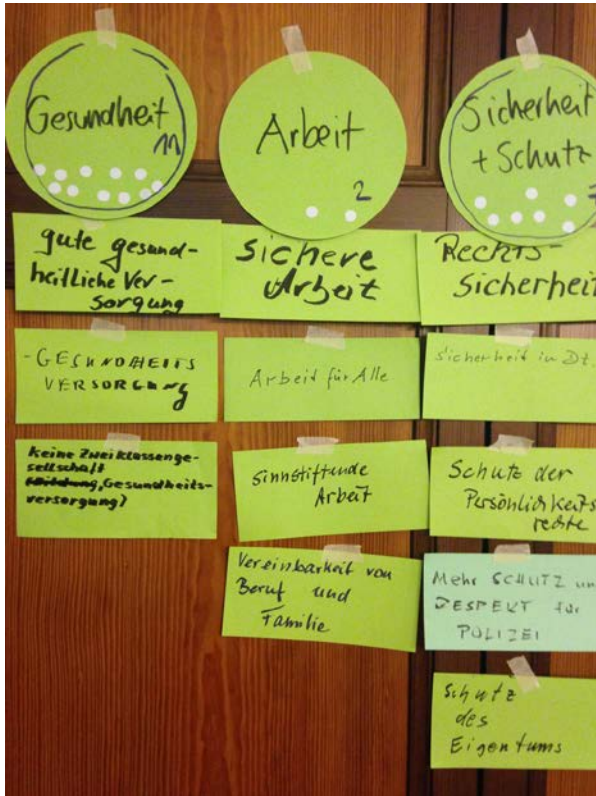 Gesundheit
11
gute gesund-
heitliche Ver-
sorgung
-GESUNDHEITS
VERSORGUNG
Keine Zweiklassenge-
sellschaft
(Bildung, Gesundheits-
versorgung)
Arbeit
2
sichere
Arbeit
Arbeit für Alle
sinnstiftende
Arbeit
Vereinbarkeit von
Beruf und
Familie
Sicherheit
+ Schutz
Rechts-
sicherheit
Sicherheit in Dt.
Schutz der
Persönlichkeits
rechte
Mehr SCHUTZ un
RESPEKT für
POLIZEI
Schutz
des
Eigentums